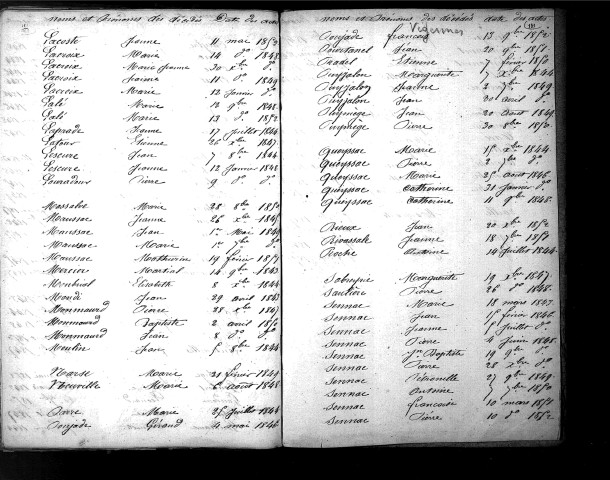 noms et Prénoms des décédés Date des actes
Lacoste Jeanne 11 mai 1852
Lacroix Marie 14 do 1848
Lacroix Marie Jeanne 30 xbre do
Lacroix Jeanne 11 do 1849
Lacroix Marie 12 Janvier do
Lalé Marie 12 9bre 1848
Lalé Marie 13 do 1852
Laprade Jeanne 17 Juillet 1844
Lafour Etienne 26 xbre 1847
Lescure Jean 7 8bre 1844
Lescure Jeanne 12 Janvier 1848
Louradour Pierre 9 do do
Massalve Marie 28 8bre 1850
Maussac Jeanne 26 xbre 1845
Maussac Jean 1er Mai 1849
Maussac Marie 1er 7bre do
Maussac Mathurin 19 février 1851
Mercier Martial 14 9bre 1843
Monbial Elisabeth 8 xbre 1844
Moudi Jean 29 avril 1843
Monmaurd Pierre 28 xbre 1847
Monmaurd Baptiste 2 avril 1850
Monmaurd Jean 8 do do
Moulin Jean 5 8bre 1844
Narse Marie 21 février 1849
Nouvelle Marie 6 aout 1848
Marie 25 Juillet 1844
Poujade Géraud 4 mai 1846
noms et Prénoms des décédés date des actes
Vidermes
Poujade françois 13 9bre 1852
Pouretanel Jean 20 9bre 1850
Pradel Etienne 7 février 1850
Puyjalon Marguerite 7 xbre 1844
Puyjalon Jeanne 2 7bre 1849
Puyjalon Jean 30 avril do
Puymège Jean 20 aout 1846
Puymège Pierre 30 8bre 1850
Queyssac Marie 15 xbre 1844
Queyssac Pierre 2 7bre do
Queyssac Marie 25 août 1846
Queyssac Catherine 31 Janvier do
Queyssac Catherine 11 9bre 1848
Rieux Jean 20 xbre 1850
Rivassale Jeanne 18 7bre 1850
Roche 14 Juillet 1844
Marguerite 19 xbre 1847
Sautière Pierre 26 do 1848
Sennac Marie 18 mars 1847
Sennac Jean 15 février 1846
Sennac Jeanne 1 Juillet do
Sennac Pierre 4 Juin 1848
Sennac Jn Baptiste 19 9bre do
Sennac Pierre 28 xbre do
Sennac Petronille 27 9bre 1849
Sennac Antoine 7 7bre 1850
Sennac françoise 10 mars 1851
Sennac Pierre 10 do 1852